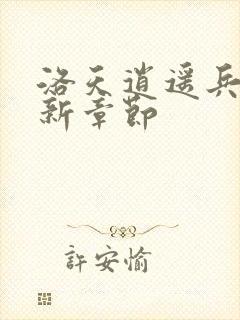 洛天逍遥兵
新章节
許安愉